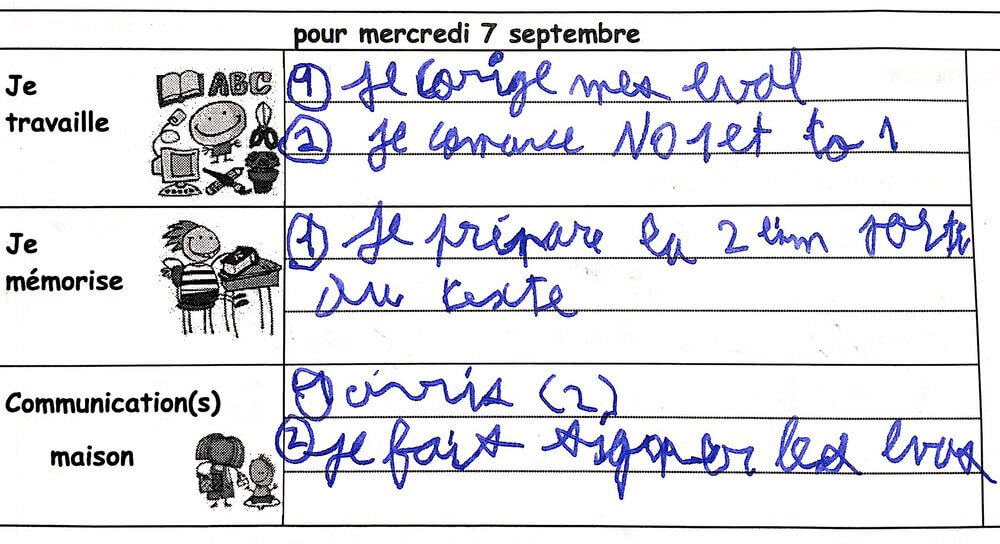 pour mercredi 7 septembre
Je travaille
ABC
① Je corige mes eval
② Je comance NO 1 et to 1
Je mémorise
① Je prépare la 2 èm partie
du texte
Communication(s) maison
① avis (2)
② je fait signer les evas